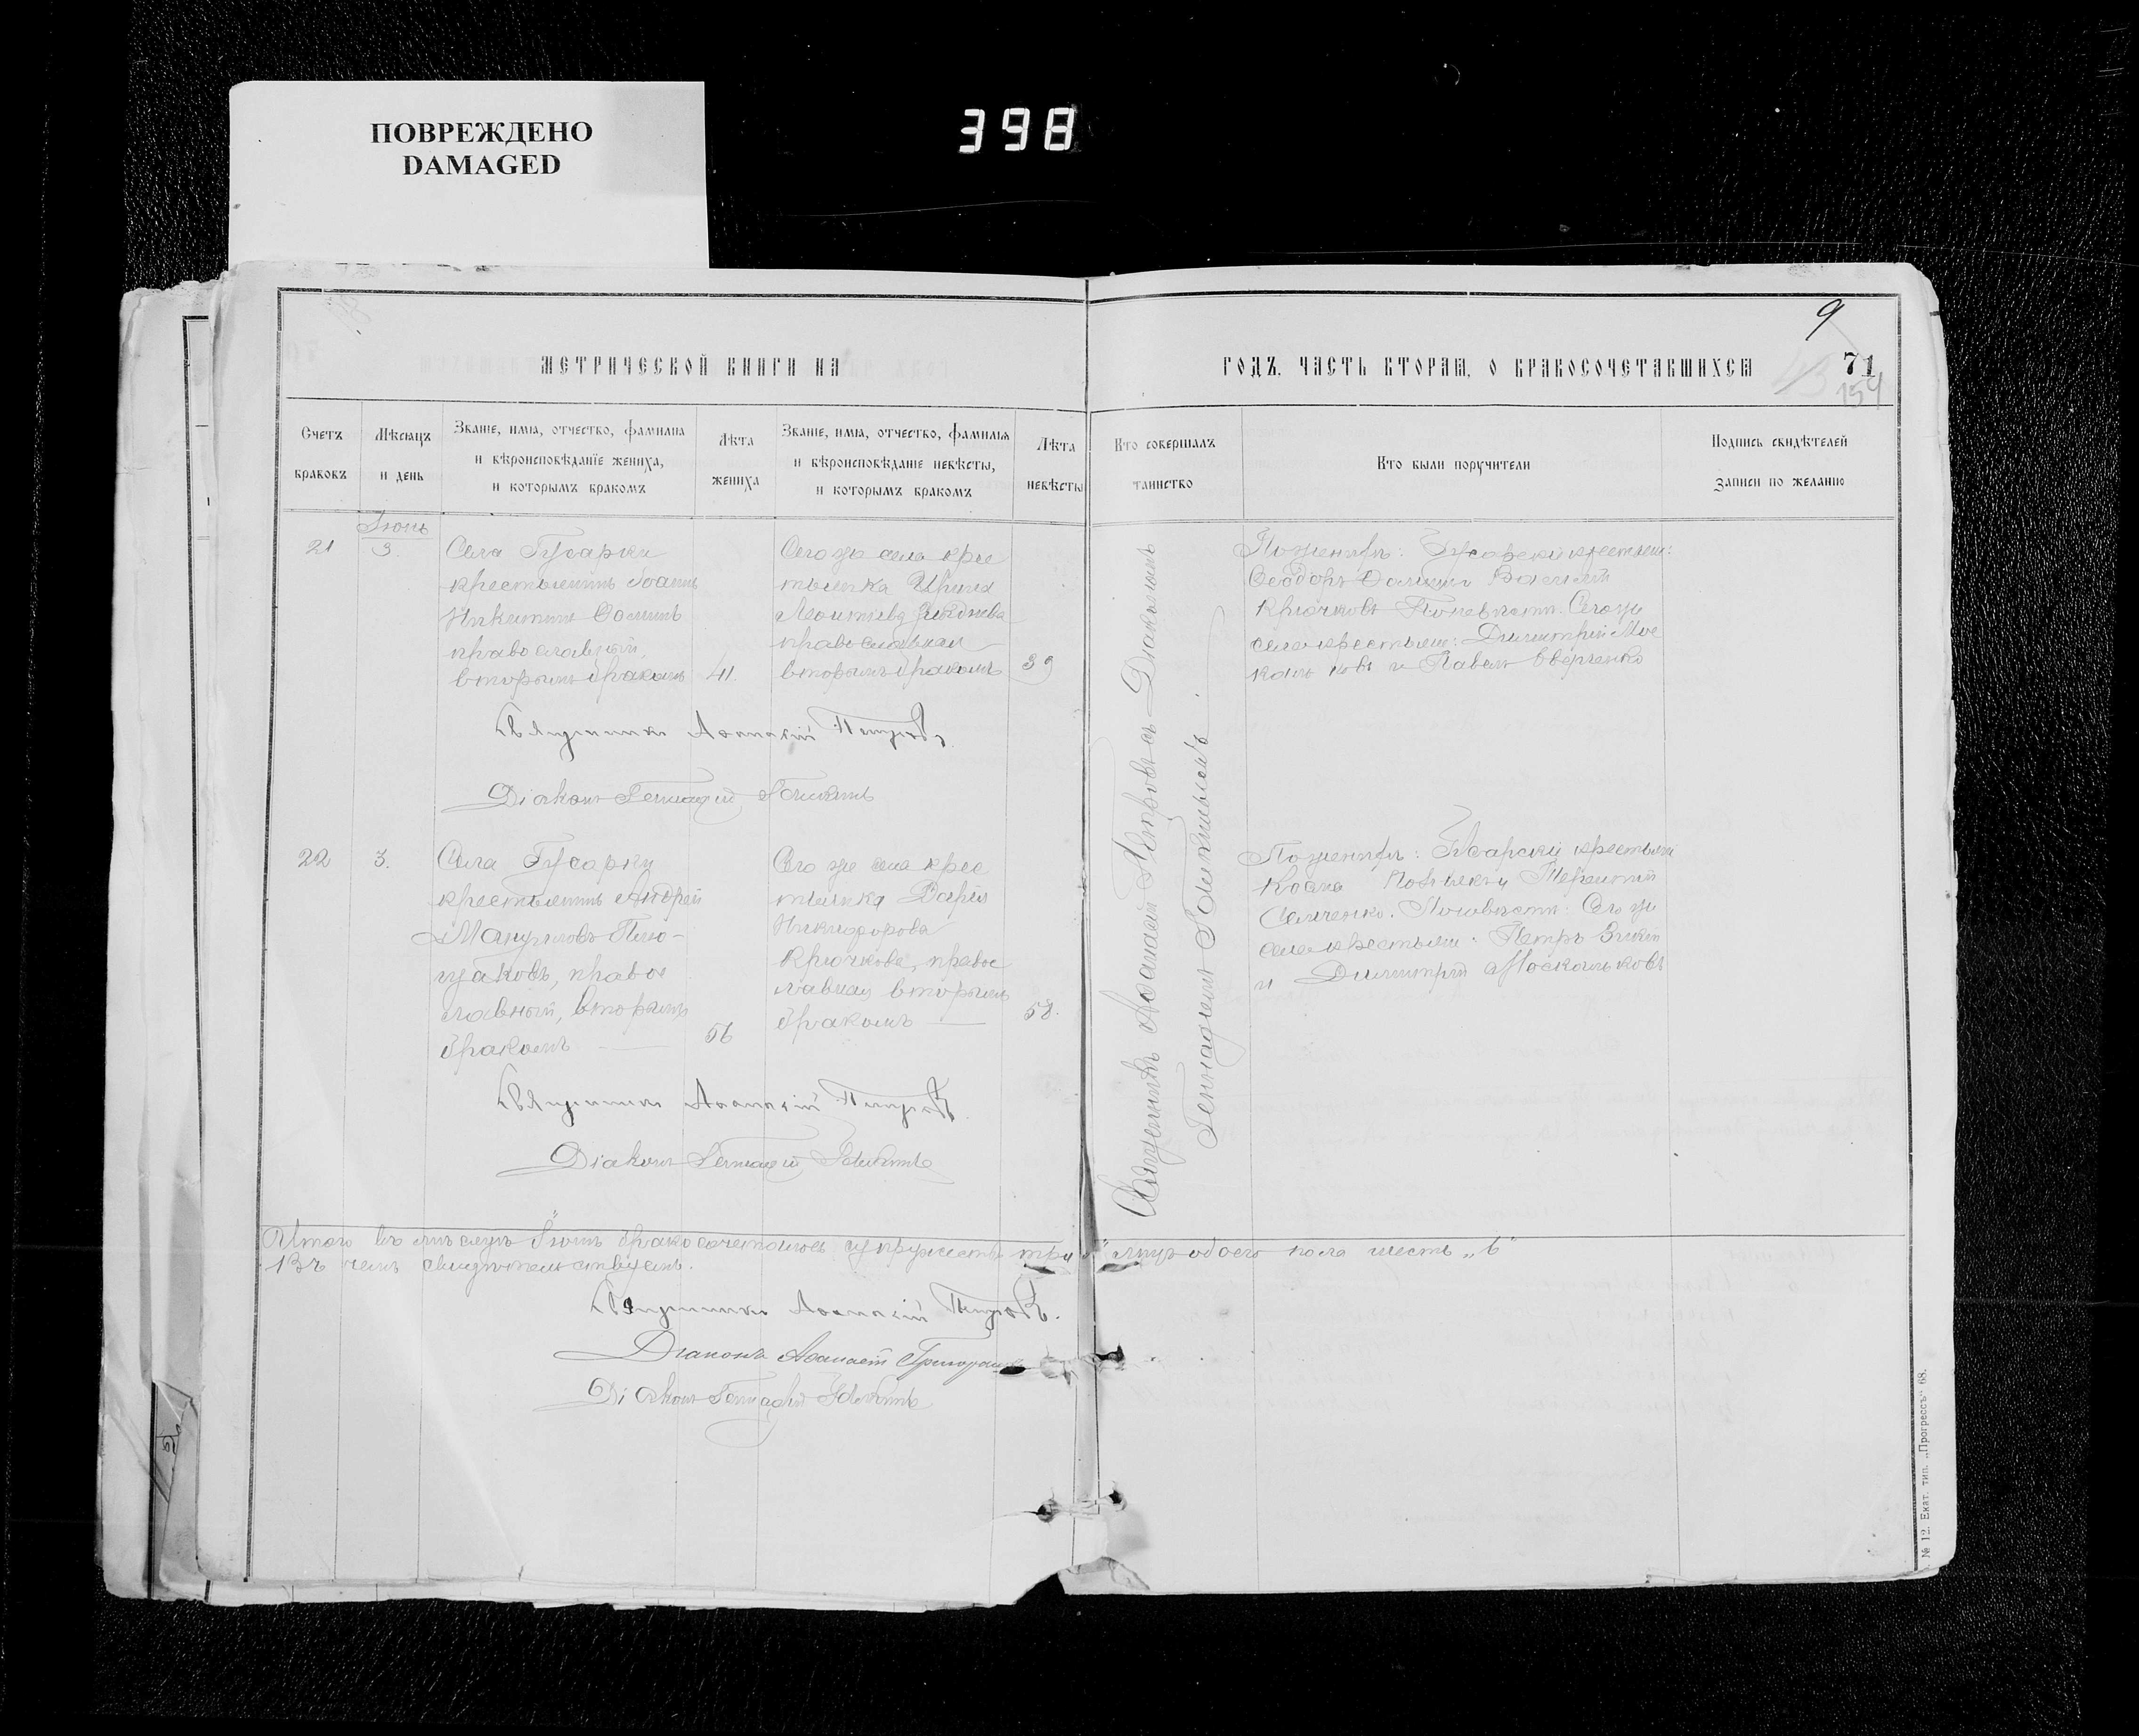 ПОВРЕЖДЕНО
DAMAGED
398
9
МЕТРИЧЕСКОЙ КНИГИ НА
ГОДЪ, ЧАСТЬ ВТОРАЯ, О БРАКОСОЧЕТАВШИХСЯ
71
154
Счетъ браковъ
Мѣсяцъ и день
Званіе, имя, отчество, фамилія и вѣроисповѣданіе жениха, и которымъ бракомъ
Лѣта жениха
Званіе, имя, отчество, фамилія и вѣроисповѣданіе невѣсты, и которымъ бракомъ
Лѣта невѣсты
Кто совершалъ таинство
Кто были поручители
Подпись свидѣтелей записи по желанію
Іюнь
21
3.
Села Гусарки
крестьянинъ Іоаннъ
Никитинъ Ѳоминъ
православный,
вторымъ бракомъ
41.
Сего же села крес
тьянка Ирина
Леонтіева
православная
вторымъ бракомъ
39
Священникъ Аѳанасій Петровъ съ Діакономъ
Геннадіемъ
По женихѣ: Гусарскіе крестьян:
Ѳеодоръ Ѳоминъ Василій
Крючковъ По невѣстѣ: Сего же
села крестьяне: Димитрій Мос
кальковъ и Павелъ Оверченко
Священникъ Аѳанасій Петровъ
Діаконъ Геннадій
22
3.
Села Гусарки
крестьянинъ Андрей
Мануиловъ Плю-
щаковъ, правос
лавный, вторымъ
бракомъ
56
Сего же села крес
тьянка Дарія
Никифорова
Крючкова, правос
лавная вторымъ
бракомъ
58.
По женихѣ: Гусарскіе крестьяне
Косма Терентій
Семченко. По невѣстѣ: Сего же
села крестьяне: Петръ
и Димитрій Москальковъ
Священникъ Аѳанасій Петровъ
Діаконъ Геннадій
Итого въ мѣсяцѣ Іюнѣ бракосочеталось супружествъ три лицъ обоего пола шесть „6"
Въ чемъ свидѣтельствуемъ.
Священникъ Аѳанасій Петровъ.
Діаконъ Аѳанасій
Діаконъ Геннадій
№ 12. Екат. тип. „Прогрессъ" 68.